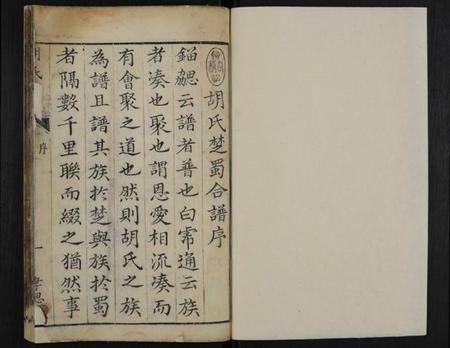 胡氏楚蜀合譜序
鎦勰云譜者普也白虎通云族
者凑也聚也謂恩愛相流凑而
有會聚之道也然則胡氏之族
為譜且譜其族於楚與族於蜀
者隔數千里聯而綴之猶然事
序
一